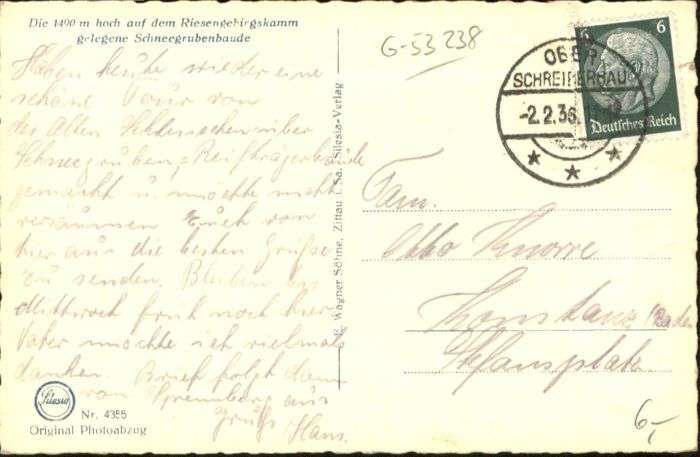 Die 1490 m hoch auf dem Riesengebirgskamm
gelegene Schneegrubenbaude
Haben heute wieder eine
schöne Tour von
der Alten Schlesischen über
Schneegruben, Reifträgerbaude
gemacht u. möchte nicht
versäumen Euch von
hier aus die besten Grüße
zu senden. Bleiben bis
Mittwoch früh noch hier
Vater möchte ich vielmals
danken. Brief folgt dann
von Spremberg aus
Gruß Hans.
Silesia
Nr. 4355
Original Photoabzug
E. Wagner Söhne, Zittau i. Sa. /Silesia-Verlag
G-53 238
OBER
SCHREIBERHAU
-2.2.36.
6 6
Deutsches Reich
Fam.
Otto Knorre
Konstanz /Baden
Stefansplatz
6,-